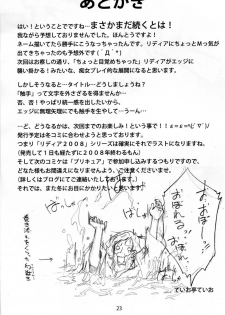 あとがき
はい！ということでですね…まさかまだ続くとは！
我ながら予想外でした。ほんとうですよ！
ネーム描いてたら勝手にこうなっちゃったんです。リディアにちょっとMっ気が
出てきちゃったのも予想外です（´Д｀*）
次回はお察しの通り、「ちょっと自覚めちゃった」リディアがエッジに
襲い掛かる！みたいな、痴女プレイ的な内容になるかと思います。
それにしてもあれですね…タイトル…どうしましょうね？
「触手」って文字を外さざるを得ませんが…
否、否！やっぱり統一感を出したいから、
エッジに無理矢理にでも触手を生やして…うーん…
…と、どうなるかは、次回までのお楽しみ！という事で！！
発行予定は冬コミに合わせて…という感じです。
つまり「リディア2008」シリーズは確実にそれでラストになりますね。
（発売して1日も経たずに2008年終わるもん）
そして次のコミケは「プリキュア」で参加申し込みするつもりですので、
どなた様もお間違えになりませんよう、ご注意くださいませ。
（詳しくはブログにてご連絡いたしております。）
それでは、また冬にお目にかかれたらと思います！
おぼれる
おぼれる
23
ていお亭ていお